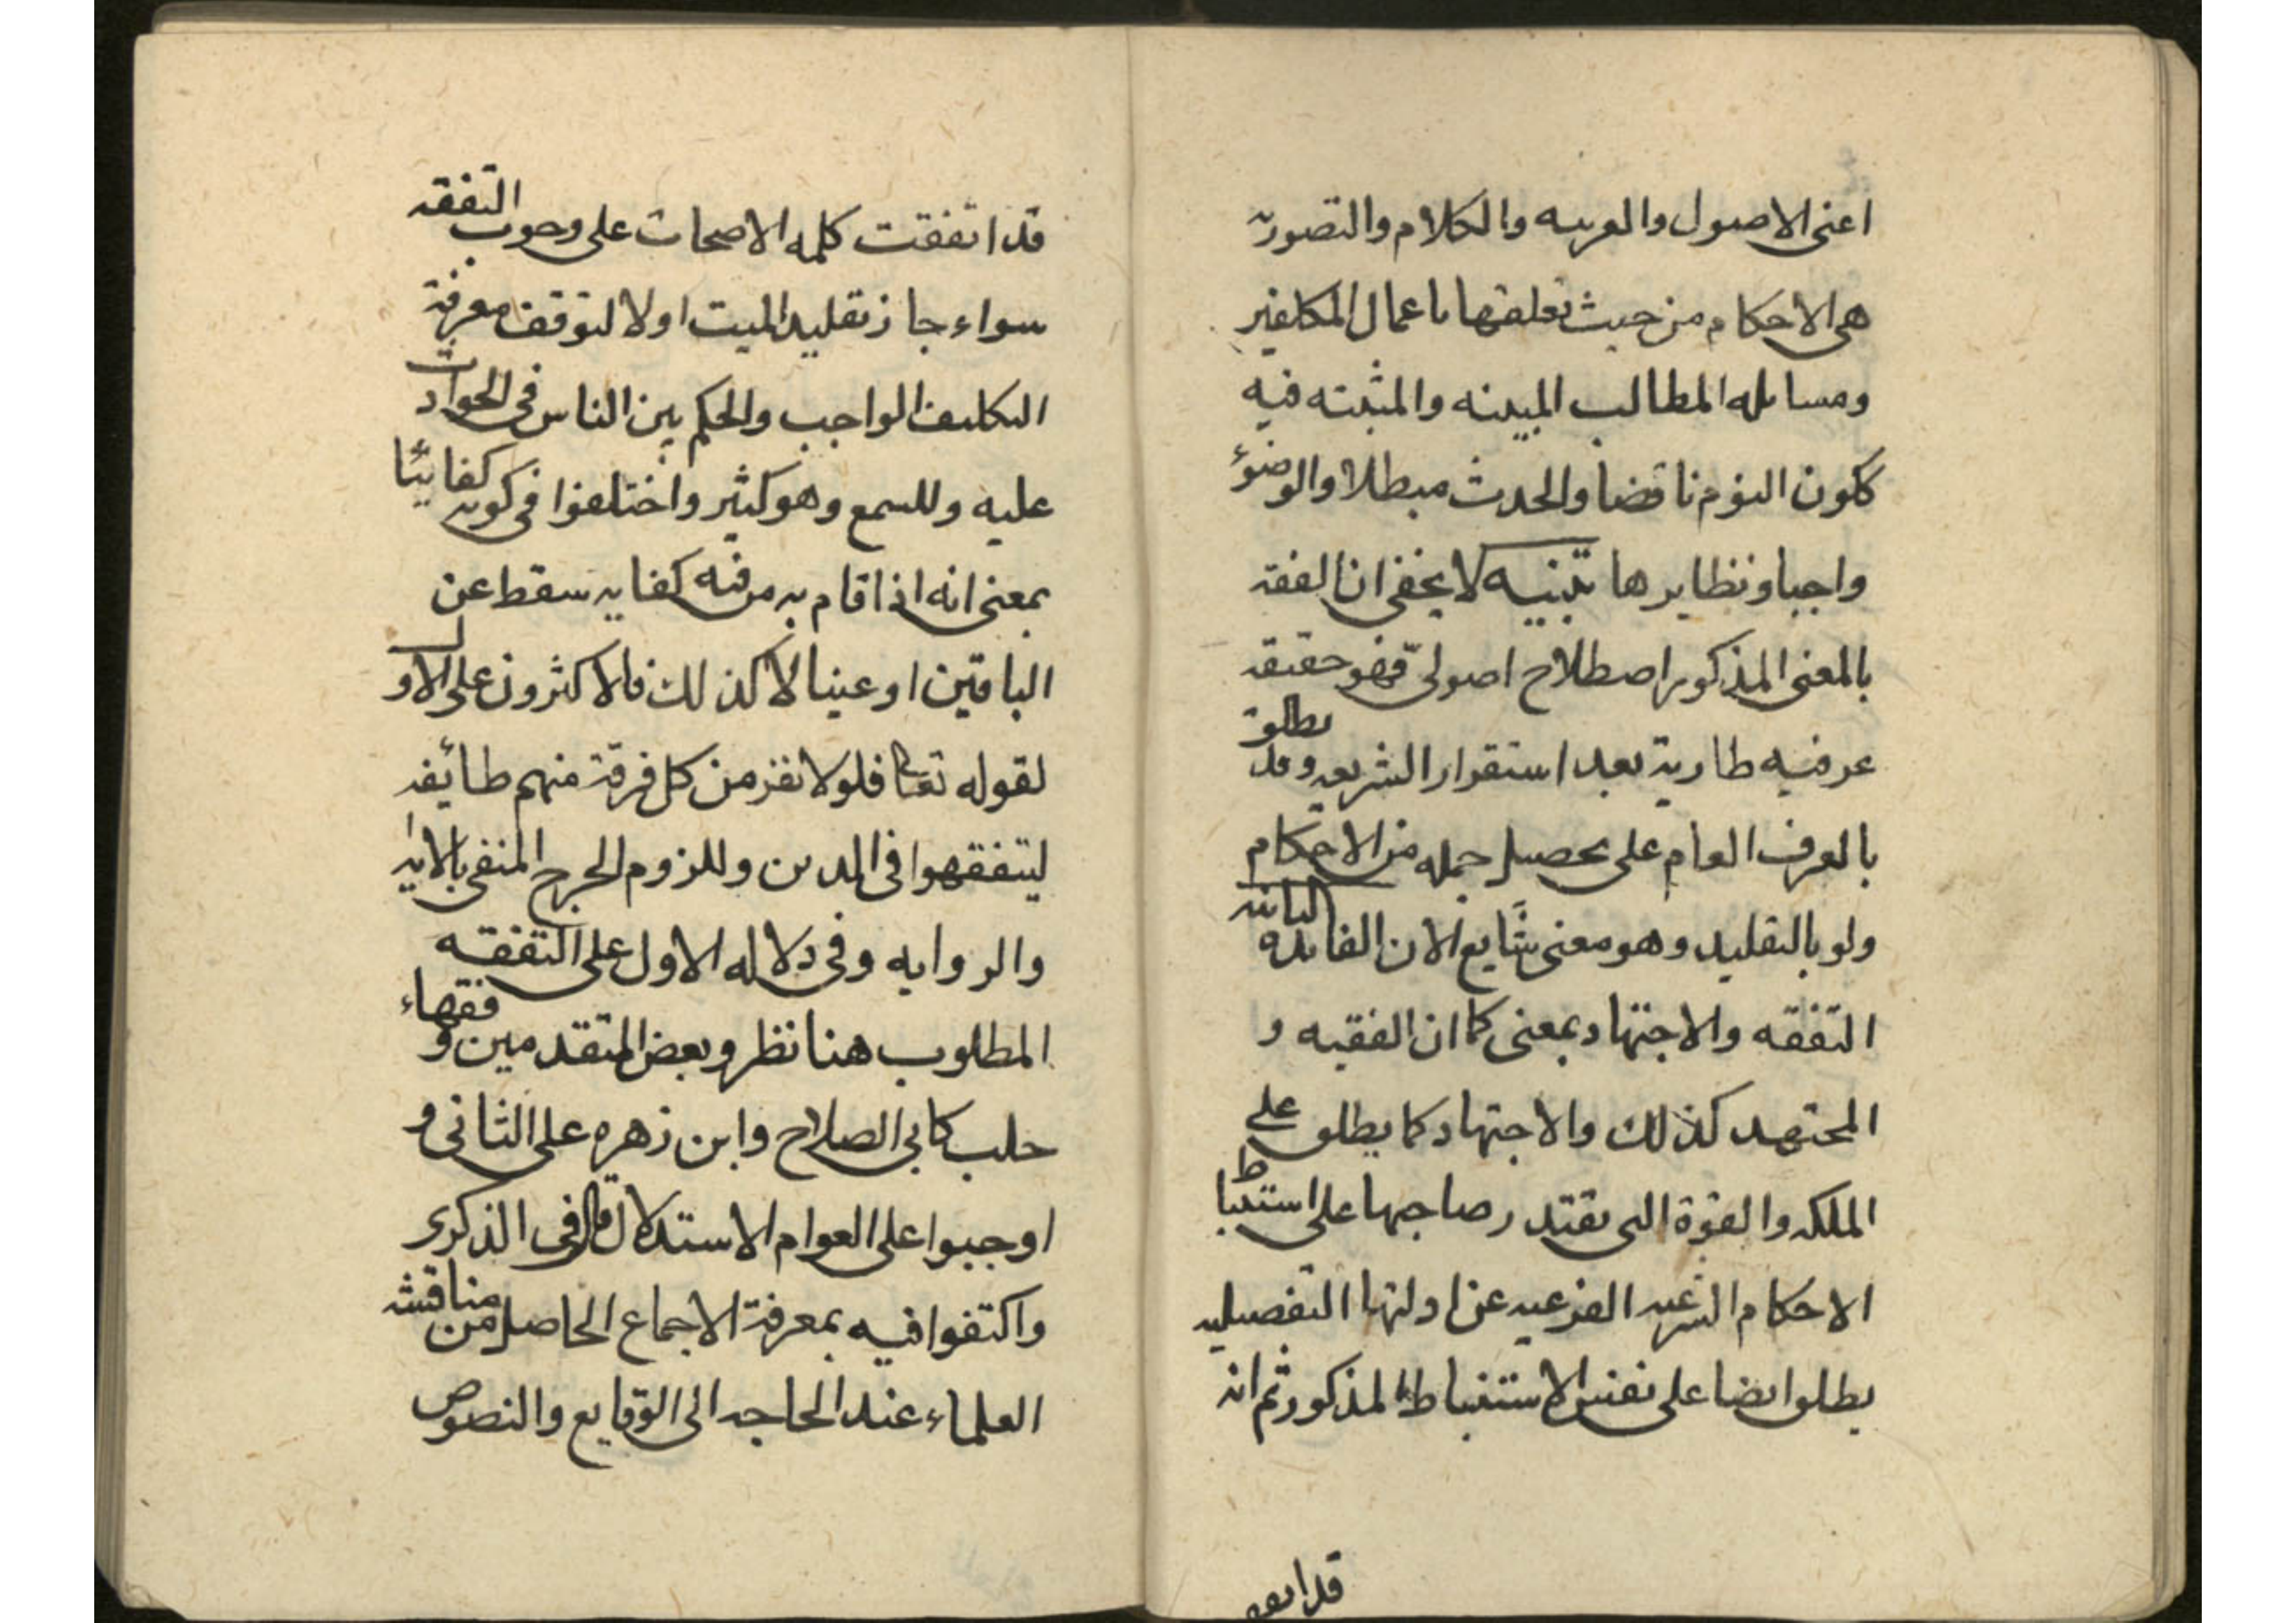 اعنى الاصول والعربيه والكلام والتصوريه
هى الاحكام من حيث تعلقها باعمال المكلفين
ومسايله المطالب المبينه والمثبته فيه
ككون النوم ناقضا والحدث مبطلا والوضوء
واجبا ونظايرها تنبيه لا يخفى ان الفقه
بالمعنى المذكور اصطلاح اصولىّ فهو حقيقه
عرفيه طارية بعد استقرار الشريعه وقد يطلق
بالعرف العام على تحصيل جمله من الاحكام
ولو بالتقليد وهو معنى شايع الان الفايده الثانيه
التفقه والاجتهاد بمعنى كما ان الفقيه و
المجتهد كذلك والاجتهاد كما يطلق على
الملكه والقوة التى يقتدر صاحبها على استنباط
الاحكام الشرعيه الفرعيه عن ادلتها التفصيليه
يطلق ايضا على نفس الاستنباط المذكور ثم انه
قد اتفقـ
قد اتفقت كلمه الاصحاب على وجوب التفقه
سواء جاز تقليد الميت او لا لتوقف معرفة
التكليف الواجب والحكم بين الناس فى الحوادث
عليه وللسمع وهو كثير واختلفوا فى كونه كفايئا
بمعنى انه اذا قام به من فيه كفايه سقط عن
الباقين او عينيا لا كذلك فالاكثرون على الاول
لقوله تعا فلولا نفر من كل فرقة منهم طائفه
ليتفقهوا فى الدين وللزوم الحرج المنفى بالايه
والروايه وفى دلاله الاول على التفقه
المطلوب هنا نظر وبعض المتقدمين و فقهاء
حلب كابى الصلاح وابن زهره على الثانى و
اوجبوا على العوام الاستدلال قال فى الذكرى
واكتفوا فيه بمعرفة الاجماع الحاصل من مناقشه
العلماء عند الحاجه الى الوقايع والنصوص